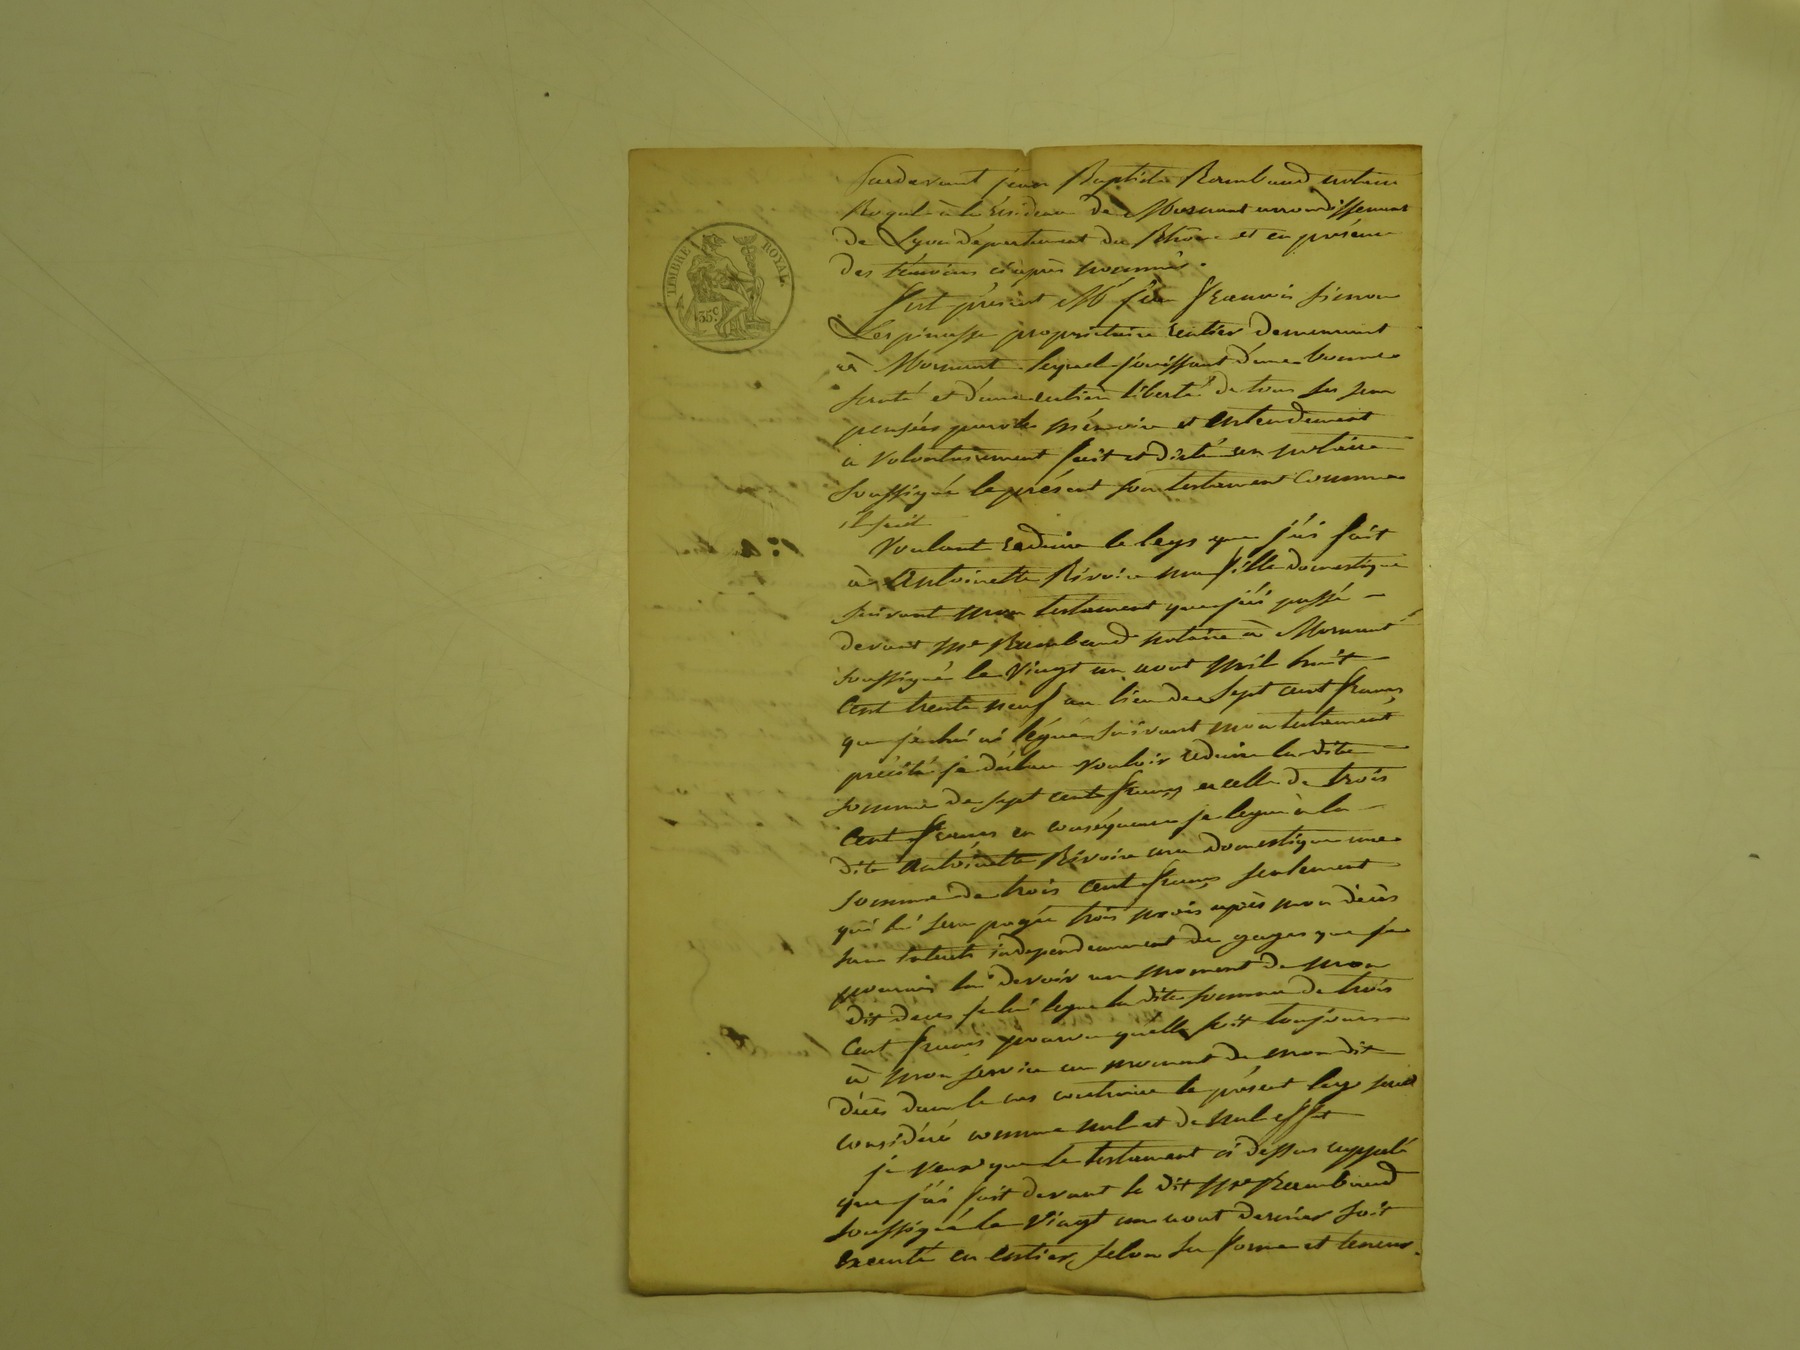 TIMBRE ROYAL
35c.
Pardevant jean Baptiste Rambaud notaire
Royal à la résidence de Mornant arrondissement
de Lyon département du Rhône et en présence
des témoins ci après nommés.
fut présent Mr François Simon
Lespinasse propriétaire rentier demeurant
à Mornant lequel jouissant d'une bonne
santé et d'une entière liberté de tous ses sens
pensées parole mémoire et entendement
a volontairement fait et dicté au notaire
soussigné le présent son testament comme
il suit
Voulant reduire le legs que j'ai fait
à Antoinette Rivoire ma fille domestique
suivant mon testament que j'ai passé
devant Me Rambaud notaire à Mornant
soussigné le vingt un aout mil huit
cent trente neuf au lieu de sept cent francs
que je lui ai légué suivant mon testament
précité je déclare vouloir reduire la dite
somme de sept cent francs a celle de trois
cent francs en conséquence je legue à la
dite Antoinette Rivoire ma domestique une
somme de trois cent francs seulement
qui lui sera payée trois mois après mon décès
sans interets independamment des gages que je
pourrais lui devoir au moment de mon
dit deces je lui legue la dite somme de trois
cent francs pourvu quelle soit toujours
à mon service au moment de mon dit
décès dans le cas contraire le présent legs sera
considéré comme nul et de nul effet
je veux que le testament ci dessus rappelé
que j'ai fait devant le dit Me Rambaud
soussigné le vingt un aout dernier soit
executé en entier, selon sa forme et teneur.